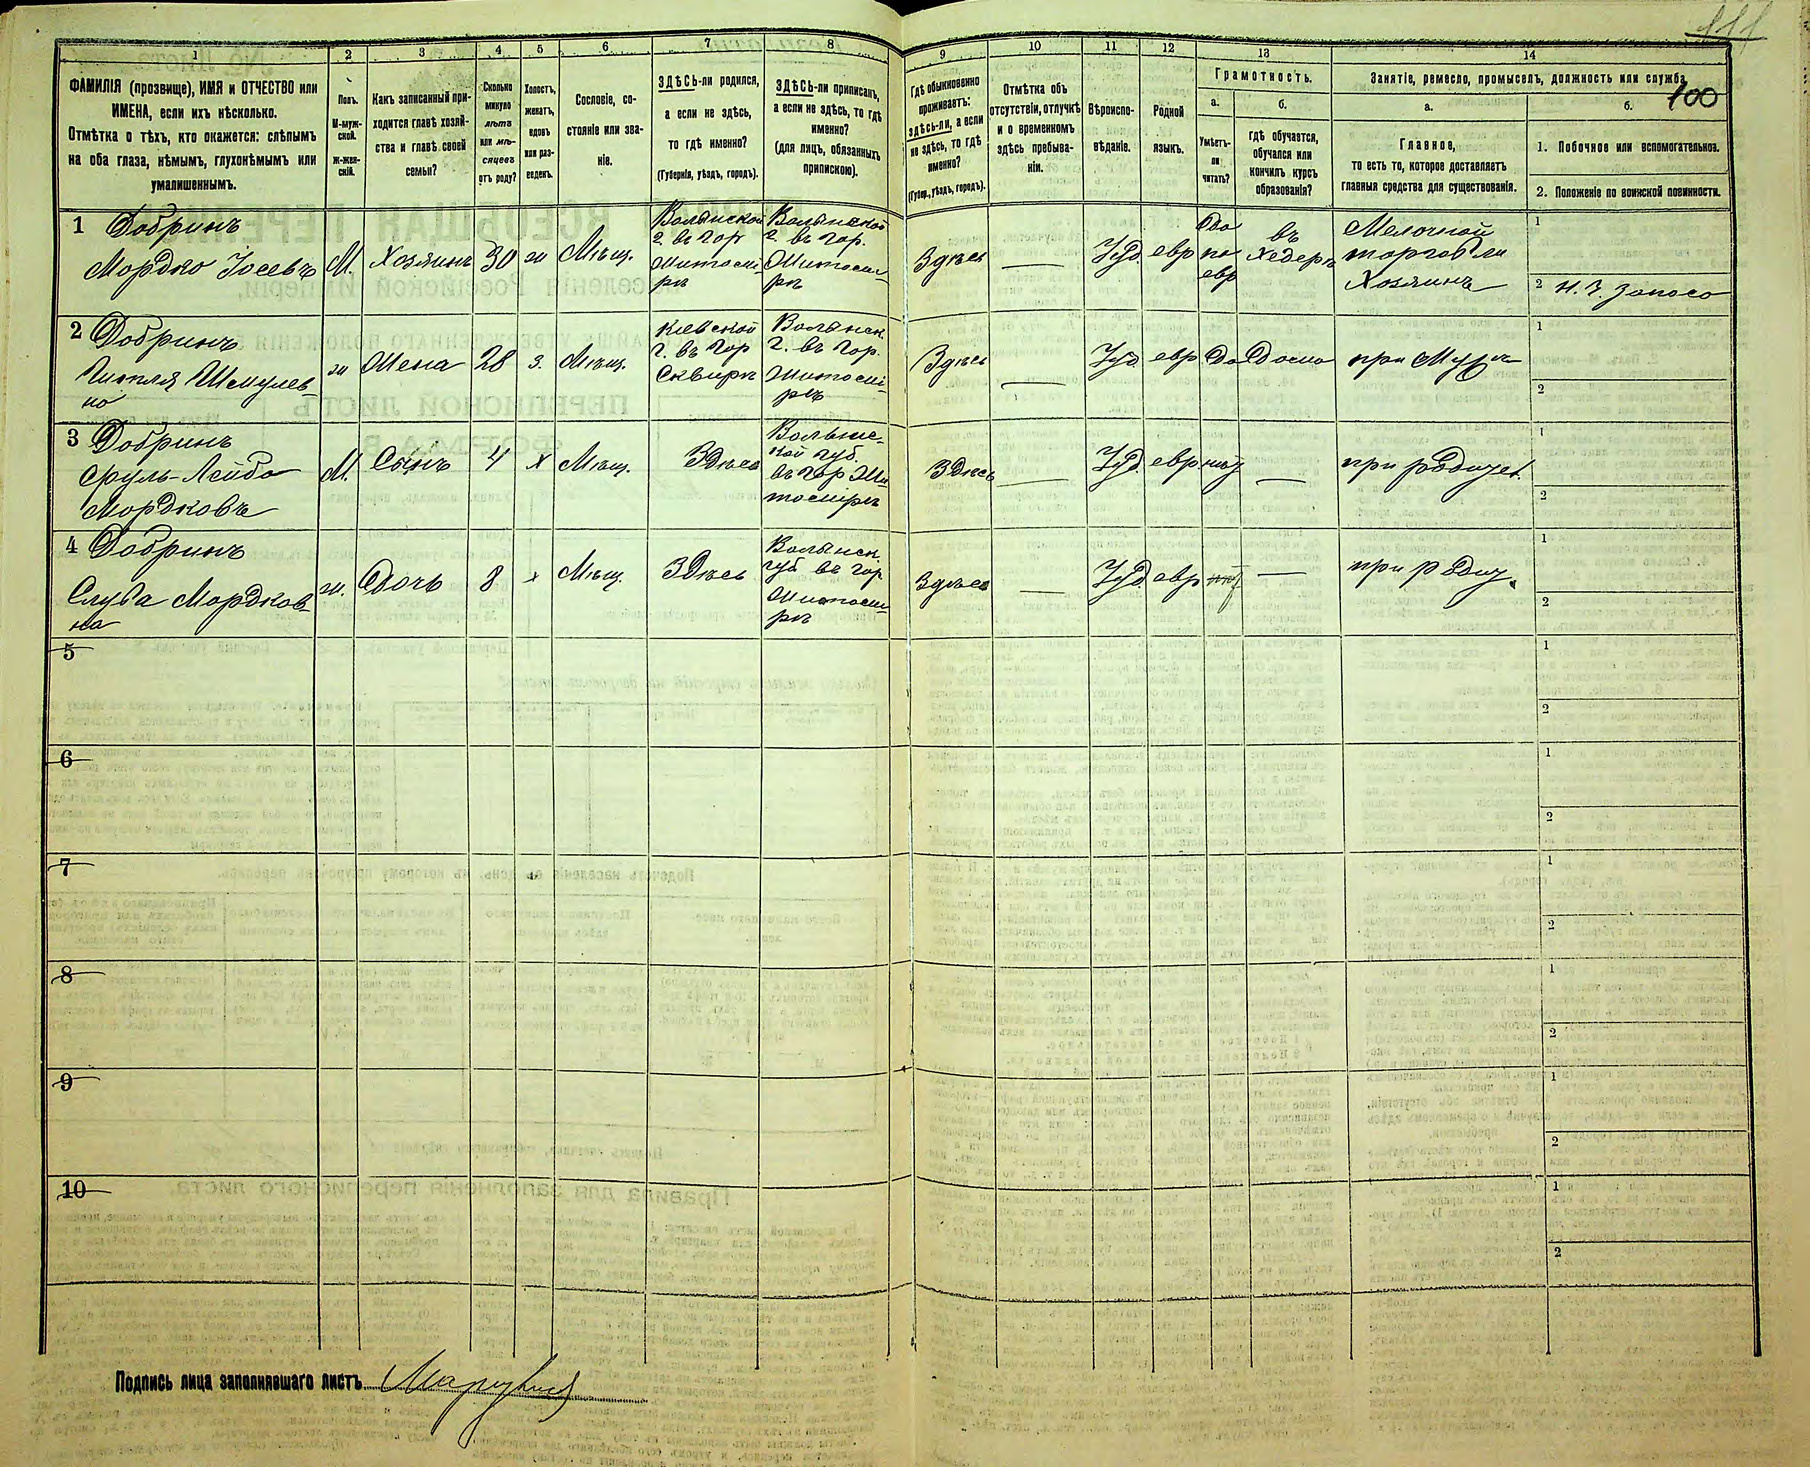 111
100
1 2 3 4 5 6 7 8 9 10 11 12 13 14
ФАМИЛІЯ (прозвище), ИМЯ и ОТЧЕСТВО или
ИМЕНА, если ихъ нѣсколько.
Отмѣтка о тѣхъ, кто окажется: слѣпымъ
на оба глаза, нѣмымъ, глухонѣмымъ или
умалишеннымъ.
Полъ.
М-муж-
ской.
Ж-жен-
скій.
Какъ записанный при-
ходится главѣ хозяй-
ства и главѣ своей
семьи?
Сколько
минуло
лѣтъ
или мѣ-
сяцевъ
отъ роду?
Холостъ,
женатъ,
вдовъ
или раз-
веденъ.
Сословіе, со-
стояніе или зва-
ніе.
ЗДѢСЬ-ли родился,
а если не здѣсь,
то гдѣ именно?
(Губернія, уѣздъ, городъ).
ЗДѢСЬ-ли приписанъ,
а если не здѣсь, то гдѣ
именно?
(для лицъ, обязанныхъ
припискою).
Гдѣ обыкновенно
проживаетъ:
здѣсь-ли, а если
не здѣсь, то гдѣ
именно?
(Губер., уѣздъ, городъ).
Отмѣтка объ
отсутствіи, отлучкѣ
и о временномъ
здѣсь пребыва-
ніи.
Вѣроиспо-
вѣданіе.
Родной
языкъ.
Грамотность.
а.
Умѣетъ-
ли
читать?
б.
гдѣ обучается,
обучался или
кончилъ курсъ
образованія?
Занятіе, ремесло, промыселъ, должность или служба.
а.
Главное,
то есть то, которое доставляетъ
главныя средства для существованія.
б.
1. Побочное или вспомогательное.
2. Положеніе по воинской повинности.
1 Добринъ
Мордко Іосевъ
М.
Хозяинъ
30
ж
Мѣщ.
Волынской
г. въ гор
Житомі
рѣ
Волынской
г. въ гор.
Житоми
рѣ
Здѣсь
Іуд.
евр
Да
по
евр
въ
Хедерѣ
Мелочной
торговли
Хозяинъ
1
2 Н. З. Запаса
2 Добринъ
Шмулев
но
ж
Жена
28
з.
Мѣщ.
Кіевской
г. въ гор
Сквирѣ
Волынск.
г. въ гор.
Житомі
рѣ
Здѣсь
Іуд
евр
Да
Дома
при Мужѣ
1
2
3 Добринъ
Сруль-Лейба
Мордковъ
М.
Сынъ
4
х
Мѣщ.
Здѣсь
Волынс-
кой губ.
въ гор Жи
томірѣ
Здѣсь
Іуд.
евр
нѣт
при родител.
1
2
4 Добринъ
Мордков
на
ж.
Дочь
8
х
Мѣщ.
Здѣсь
Волынск
губ въ гор
Житоми
рѣ
Здѣсь
Іуд
евр
нѣт
при родит.
1
2
5
1
2
6
1
2
7
1
2
8
1
2
9
1
2
10
1
2
Подпись лица заполнявшаго листъ